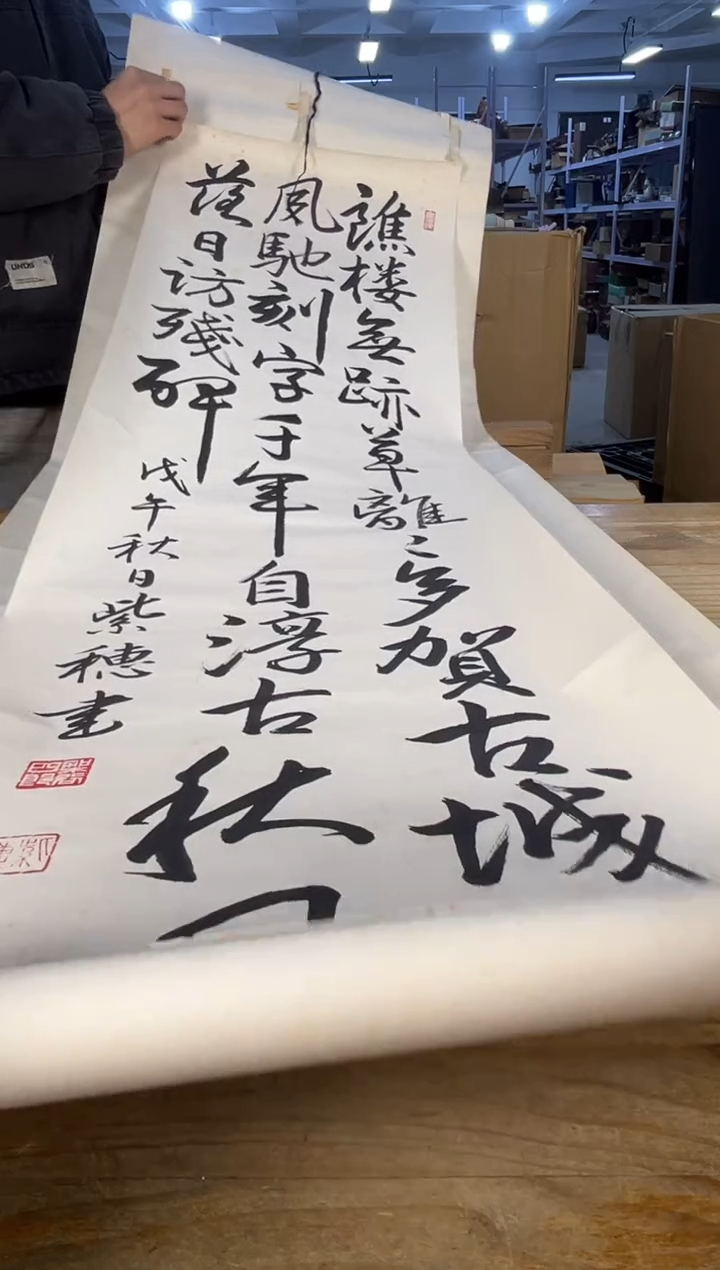 譙楼無跡草離〻多賀古城
風馳刻字千年自淳古秋
落日訪残碑
戊午秋日紫穂書